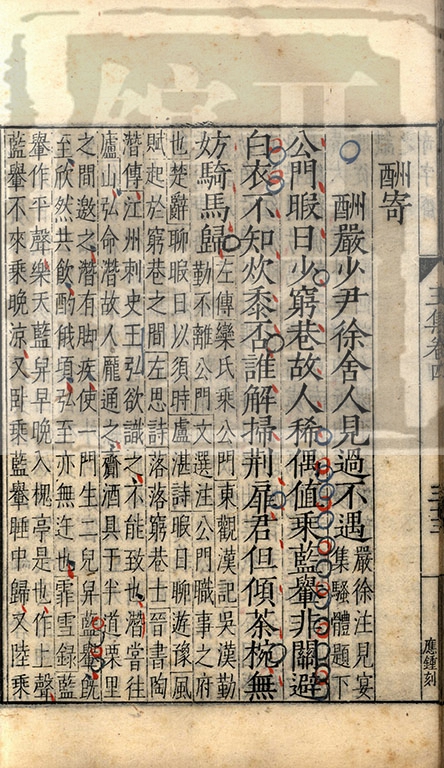 酬寄
酬嚴少尹徐舍人見過不遇
嚴徐注見宴
集騷體題下
公門暇日少窮巷故人稀偶值乘藍轝非關避
白衣不知炊黍否誰解掃荆扉君但傾茶椀無
妨騎馬歸
左傳欒氏乘公門東觀漢記吳漢勤
勤不離公門文選注公門職事之府
也楚辭聊暇日以須時盧湛詩暇日聊遊豫風
賦起於窮巷之間左思詩落落窮巷士晉書陶
潛傳江州刺史王弘欲識之不能致也潛嘗往
廬山弘命潛故人龐通之齎酒具于半道栗里
之間邀之潛有脚疾使一門生二兒舁藍轝旣
至欣然共飲酌俄頃弘至亦無迕也霏雪錄藍
轝作平聲樂天藍舁早晚入槐亭是也作上聲
藍轝不來乘晚涼又卧乘藍轝睡中歸又陸乘
應鍾刻